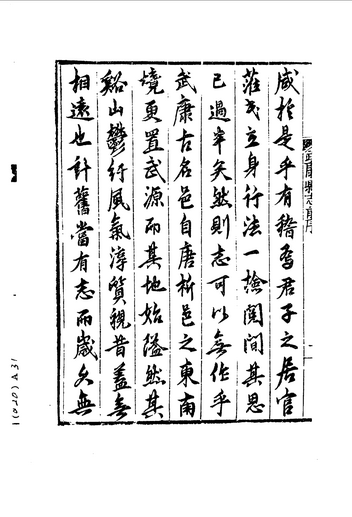 咸於是乎有稽焉君子之居官
莅民立身行法一檢閱間其思
已過半矣然則志可以無作乎
武康古名邑自唐析邑之東南
境更置武源而其地始隘然其
谿山鬱紆風氣淳質視昔蓋無
相遠也計舊當有志而歲久無
武康縣志前序